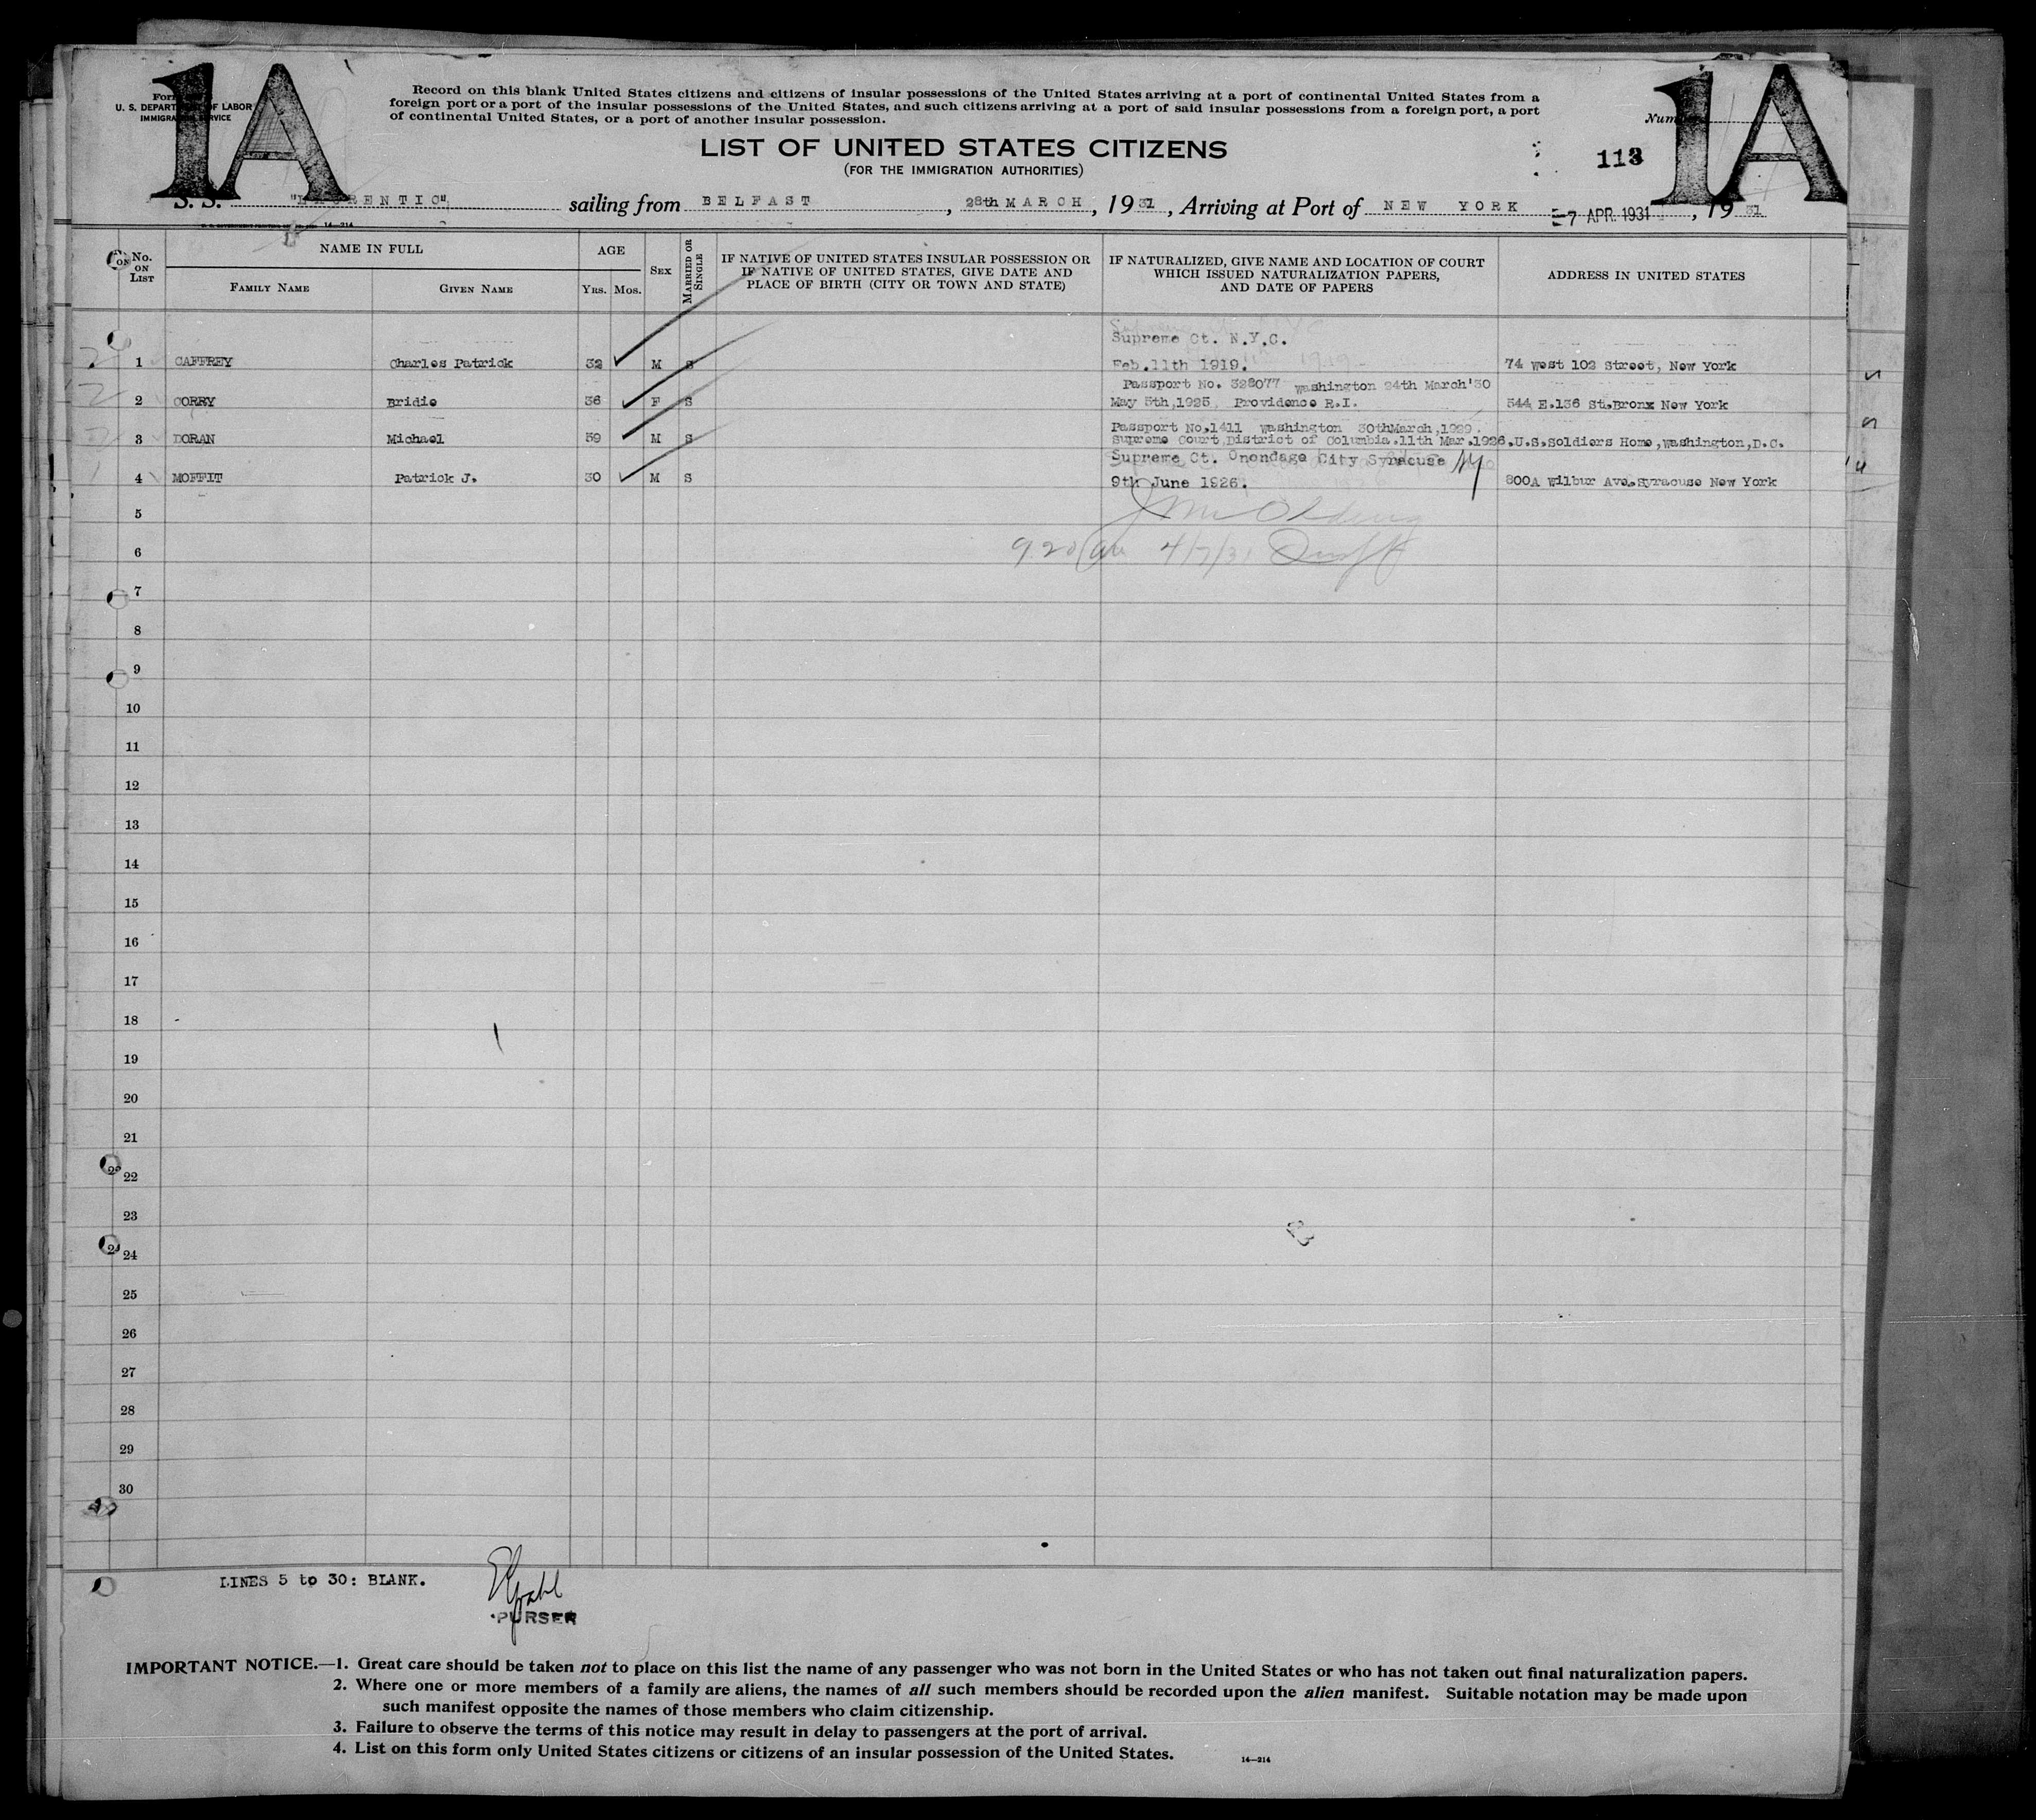 1A
1A
U. S. DEPARTMENT OF LABOR
IMMIGRATION SERVICE
Record on this blank United States citizens and citizens of insular possessions of the United States arriving at a port of continental United States from a
foreign port or a port of the insular possessions of the United States, and such citizens arriving at a port of said insular possessions from a foreign port, a port
of continental United States, or a port of another insular possession.
LIST OF UNITED STATES CITIZENS
(FOR THE IMMIGRATION AUTHORITIES)
113
S. S. "LAURENTIC" sailing from BELFAST, 28th MARCH, 1931, Arriving at Port of NEW YORK 7 APR. 1931, 1931
No. ON LIST
NAME IN FULL
FAMILY NAME
GIVEN NAME
AGE
YRS. MOS.
SEX
MARRIED OR SINGLE
IF NATIVE OF UNITED STATES INSULAR POSSESSION OR
IF NATIVE OF UNITED STATES, GIVE DATE AND
PLACE OF BIRTH (CITY OR TOWN AND STATE)
IF NATURALIZED, GIVE NAME AND LOCATION OF COURT
WHICH ISSUED NATURALIZATION PAPERS,
AND DATE OF PAPERS
ADDRESS IN UNITED STATES
Supreme Ct. N.Y.C.
1 CAFFREY Charles Patrick 32 M S Feb.11th 1919. 74 West 102 Street, New York
Passport No. 328077 Washington 24th March'30
2 CORRY Bridie 36 F S May 5th,1925, Providence R.I. 544 E.136 St.Bronx New York
Passport No.1411 Washington 30thMarch,1929.
3 DORAN Michael 59 M S Supreme Court,District of Columbia.11th Mar.1926. U.S.Soldiers Home,Washington,D.C.
Supreme Ct. Onondage City Syracuse NY
4 MOFFIT Patrick J. 30 M S 9th June 1926. 800A Wilbur Ave.Syracuse New York
5
6 9.20 am 4/7/31
7
8
9
10
11
12
13
14
15
16
17
18
19
20
21
22
23
24
25
26
27
28
29
30
LINES 5 to 30: BLANK.
PURSER
IMPORTANT NOTICE.—1. Great care should be taken not to place on this list the name of any passenger who was not born in the United States or who has not taken out final naturalization papers.
2. Where one or more members of a family are aliens, the names of all such members should be recorded upon the alien manifest. Suitable notation may be made upon
such manifest opposite the names of those members who claim citizenship.
3. Failure to observe the terms of this notice may result in delay to passengers at the port of arrival.
4. List on this form only United States citizens or citizens of an insular possession of the United States.
14—214